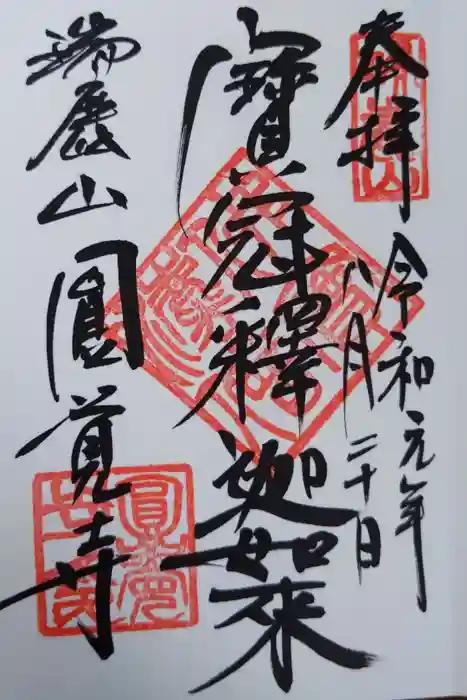 奉拝
令和元年
八月二十日
寶冠釋迦如来
瑞鹿山
圓覺寺